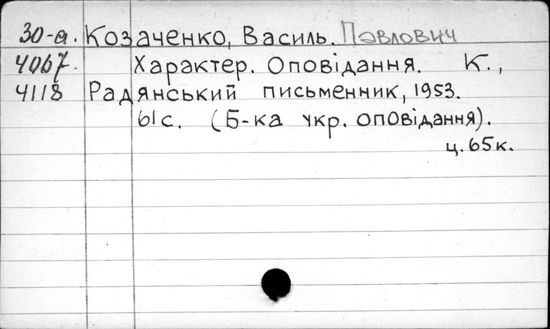 30-а. Козаченко, Василь. Павлович
4067. Характер. Оповідання. К.,
4118 Радянський письменник, 1953.
61с. (Б-ка укр. оповідання).
ц. 65к.